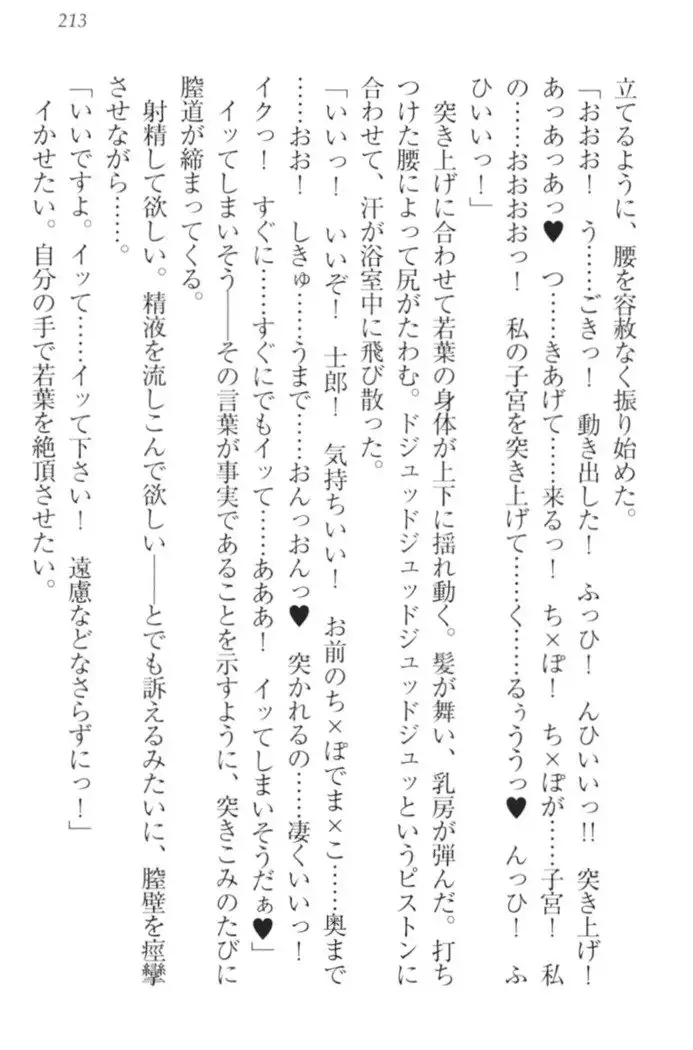 213
立てるように、腰を容赦なく振り始めた。
「おおお！　う……ごきっ！　動き出した！　ふっひ！　んひいいっ!!　突き上げ！
あっあっあっ♥　つ……きあげて……来るっ！　ち×ぽ！　ち×ぽが……子宮！　私
の……おおおおっ！　私の子宮を突き上げて……く……るぅううっ♥　んっひ！　ふ
ひいいっ！」
突き上げに合わせて若葉の身体が上下に揺れ動く。髪が舞い、乳房が弾んだ。打ち
つけた腰によって尻がたわむ。ドジュッドジュッドジュッというピストンに
合わせて、汗が浴室中に飛び散った。
「いいっ！　いいぞ！　士郎！　気持ちいい！　お前のち×ぽでま×こ……奥まで
……おお！　しきゅ……うまで……おんっおんっ♥　突かれるの……凄くいいっ！
イクっ！　すぐに……すぐにでもイッて……あああ！　イッてしまいそうだぁ♥」
イッてしまいそう――その言葉が事実であることを示すように、突きこみのたびに
膣道が締まってくる。
射精して欲しい。精液を流しこんで欲しい――とでも訴えるみたいに、膣壁を痙攣
させながら……。
「いいですよ。イッて……イッて下さい！　遠慮などなさらずにっ！」
イかせたい。自分の手で若葉を絶頂させたい。